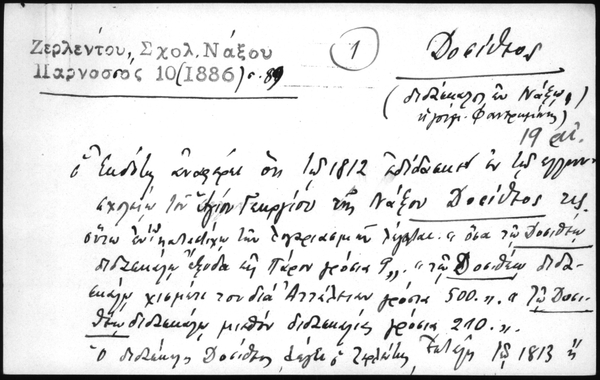 Ζερλέντου, Σχολ. Νάξου
Παρνασσός 10 (1886) σ. 89
1
Δοσίθεος
(διδάσκαλος ἐν Νάξῳ,
19 αἰ.
ὁ ἐκδότης ἀναφέρει ὅτι τῷ 1812 ἐδίδασκεν ἐν τῷ
σχολείῳ τοῦ ἁγίου Γεωργίου τῆς Νάξου Δοσίθεος τις.
οὕτω ἐν "ὅσα τῷ Δοσιθέῳ
διδασκάλῳ ἔξοδα εἰς Πάρον γρόσια 9". "τῷ Δοσιθέῳ διδα-
σκάλῳ τοῦ διὰ Ἀττάλειαν γρόσια 500". "τῷ Δοσι-
θέῳ διδασκάλῳ μισθὸν διδασκαλίας γρόσια 210".
Ὁ διδάσκαλος Δοσίθεος, λέγει ὁ Ζερλέντης, τῷ 1813 ἢ